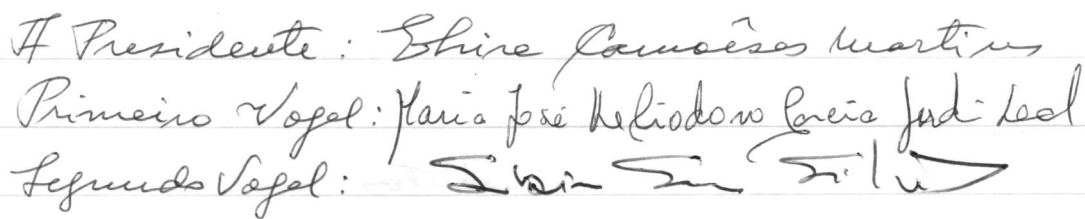 A Presidente: Elvira Camoêsas Martins
Primeiro Vogal: Maria José Heliodoro Correia Leal
Segundo Vogal: Silva